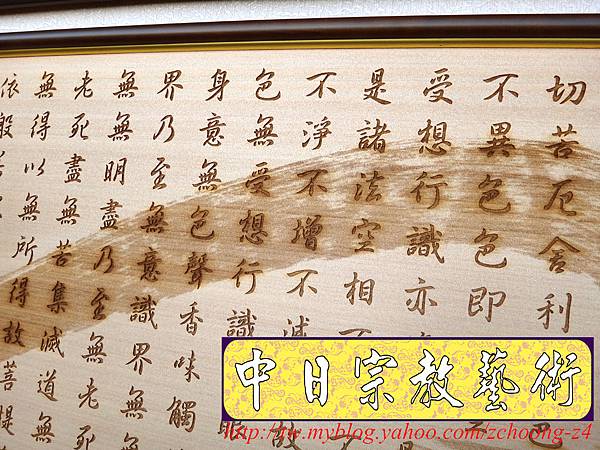 切苦厄舍利
不異色色即
受想行識亦
是諸法空相不
不淨不增不減
色無受想行識
身意無色聲香味觸
界乃至無意識界無
無無明盡乃至無老死
老死盡無苦集滅道無
無得以無所得故菩提
依般
中日宗教藝術
http://tw.myblog.yahoo.com/zchoong-z4